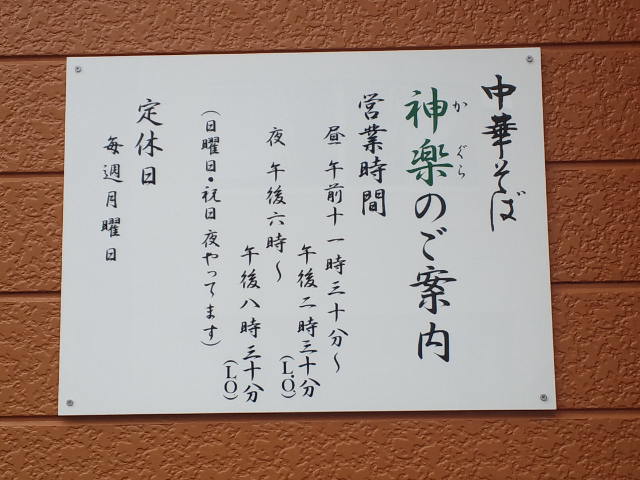 中華そば
神楽のご案内
かぐら
営業時間
昼 午前十一時三十分～
午後二時三十分
(L.O.)
夜 午後六時～
午後八時三十分
(L.O)
(日曜日・祝日夜やってます)
定休日
毎週月曜日